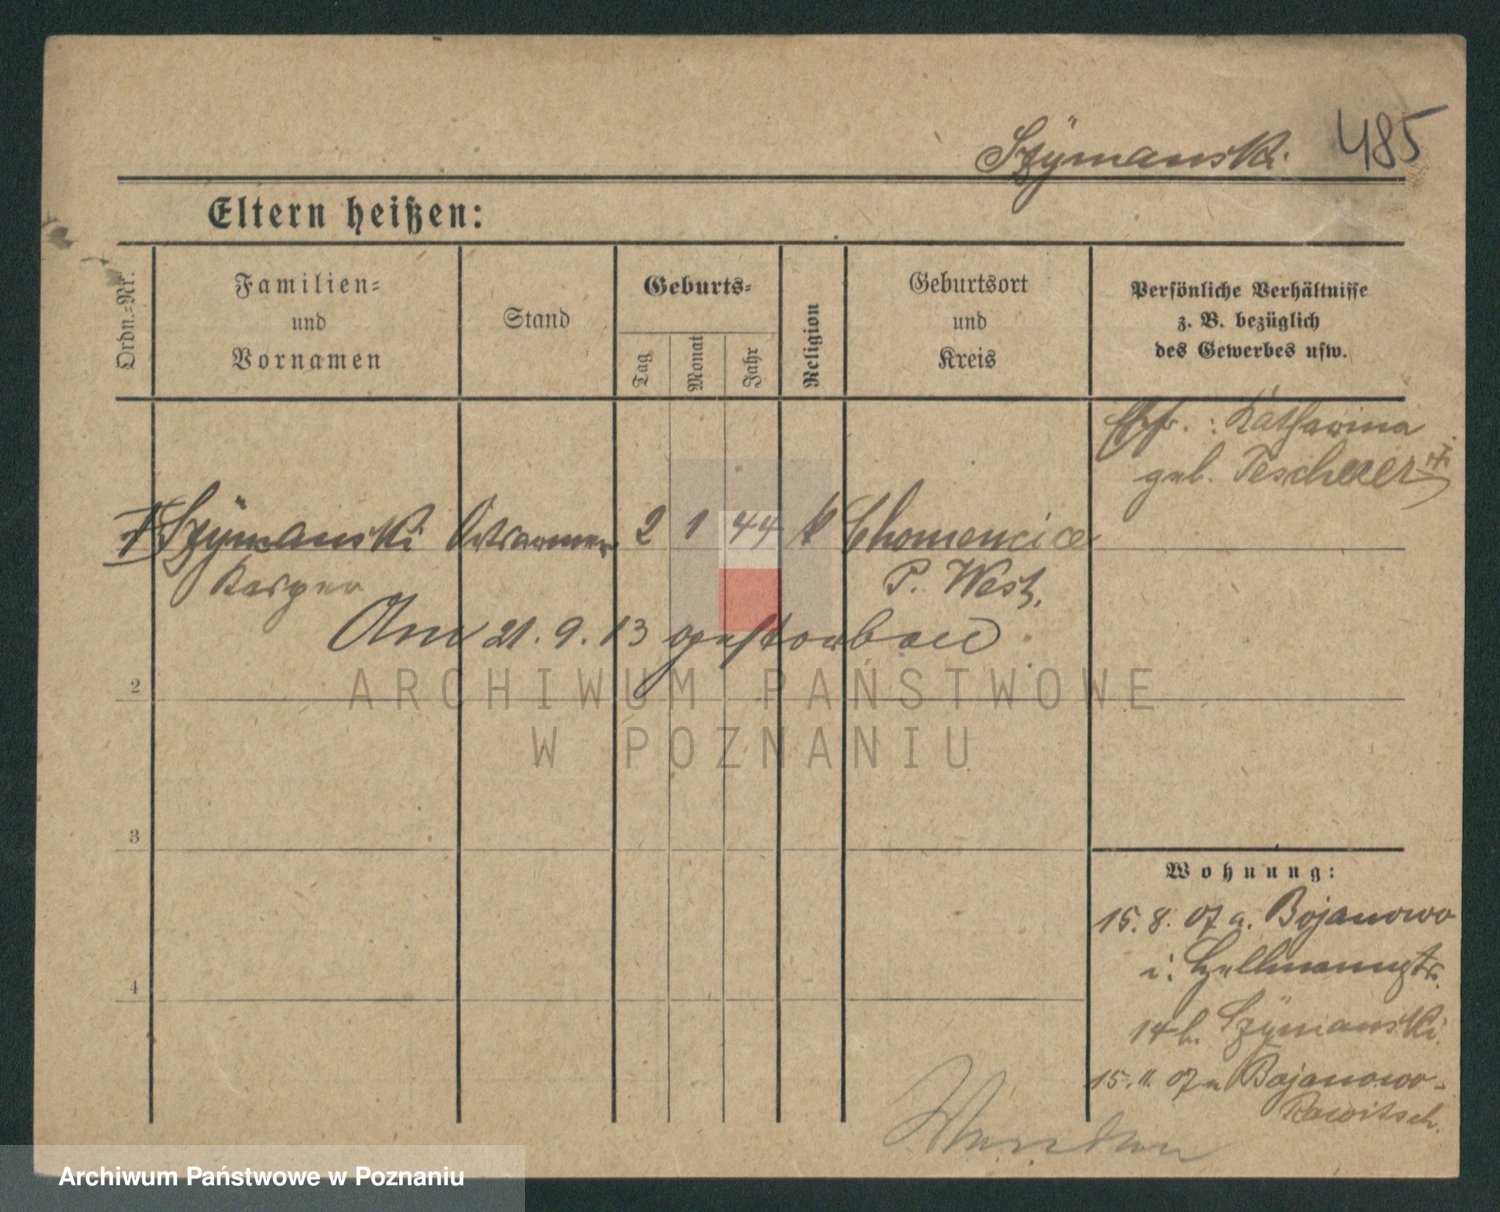 Szÿmanski.
485
Eltern heißen:
Ordn.-Nr.
Familien-
und
Vornamen
Stand
Geburts-
Tag
Monat
Jahr
Religion
Geburtsort
und
Kreis
Persönliche Verhältnisse
z. B. bezüglich
des Gewerbes usw.
Ehfr.: Katharina
geb. Tescherer +
1 Szÿmanski Ortsarmer 2 1 44 k Chomencice
Kasper P. West.
Am 21. 9. 13 gestorben
2
ARCHIWUM PAŃSTWOWE
W POZNANIU
3
4
Wohnung:
15. 8. 07 a. Bojanowo
i. Hellmannstr.
14 b. Szÿmanski.
15. 11. 07 n Bojanowo-
Rawitsch.
Wenden
Archiwum Państwowe w Poznaniu